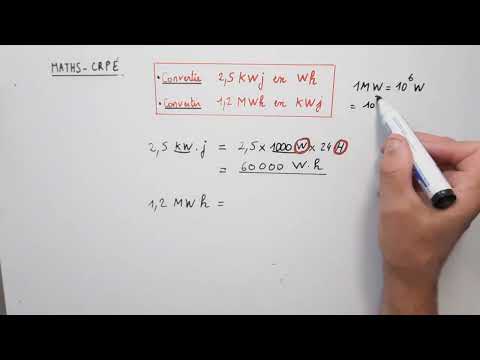 MATHS-CRPÉ
• Convertir 2,5 KWj en Wh
• Convertir 1,2 MWh en KWj
1MW = 10⁶ W
= 10
2,5 kW.j = 2,5 x 1000 W x 24 H
= 60000 W.h
1,2 MWh =